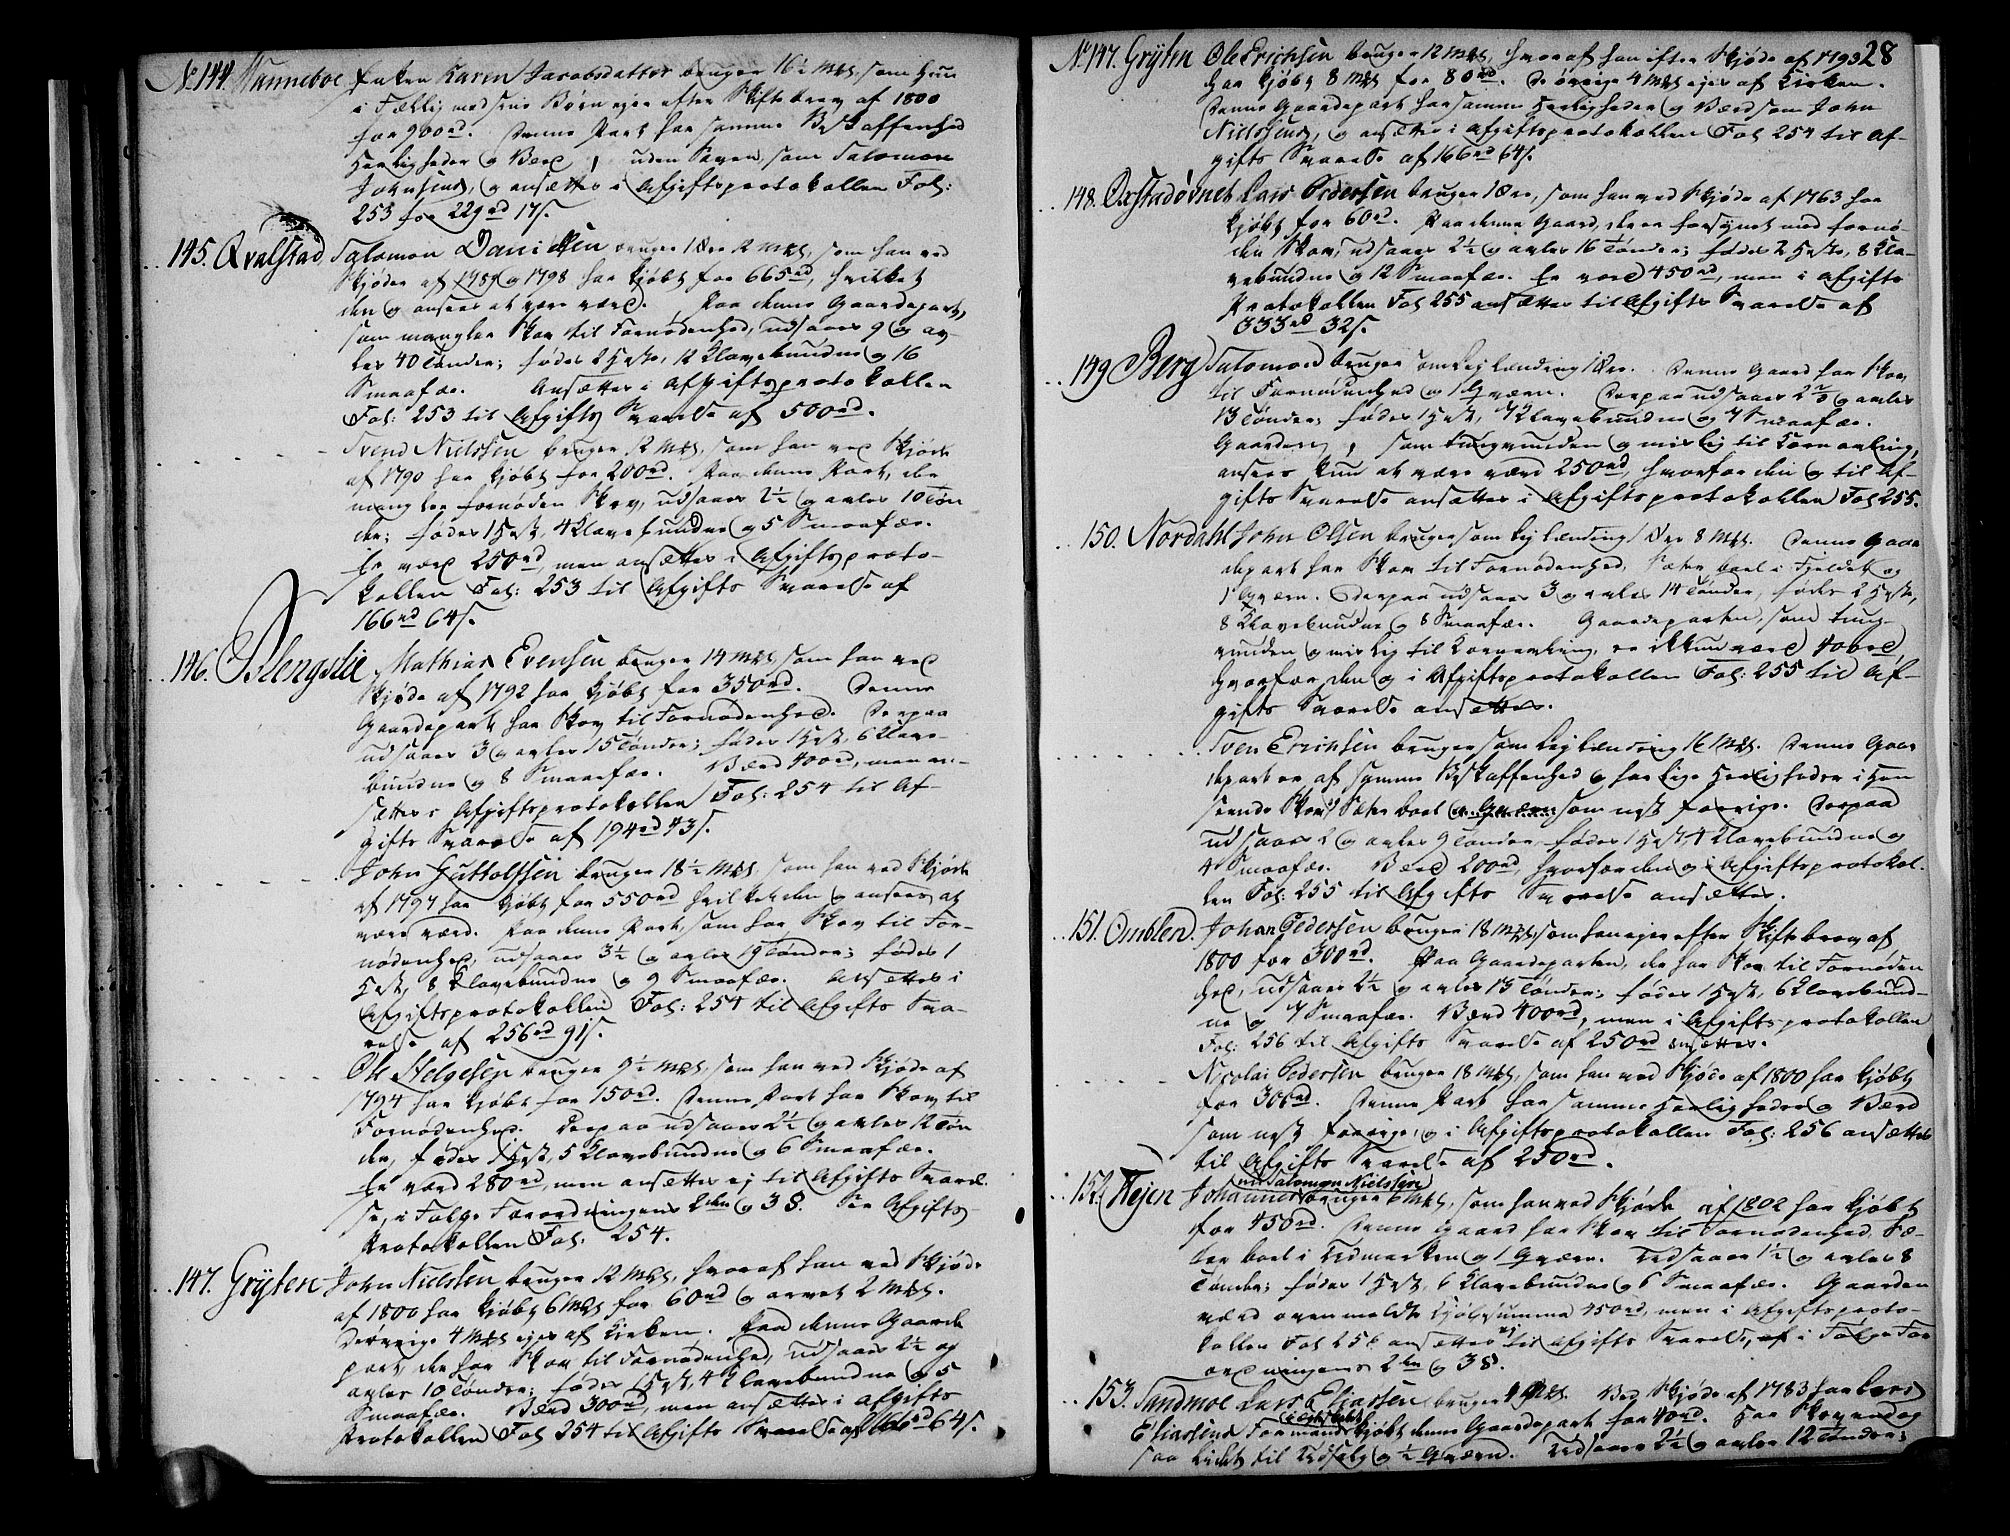 No 144. Wanneboe Enken Karen Jacobsdatter bruger 16½ Mkl, som hun
i Fællig med sine Børn ejer efter Skiftebrev af 1800
for 900rd. Denne Part har samme Beskaffenhed
Herligheder og Værd, uden Skoven, som Salomon
Johnsens, og ansættes i Afgiftsprotokollen Fol:
253 for 229rd 17s.
145. Qvalstad Salomon Danielsen bruger 1 Øre 12 Mkl, som han ved
Skjøder af 1787 og 1798 har kjøbt for 665rd, hvilket
den og ansees at være værd. Paa denne Gaardepart,
som mangler Skov til Fornødenhed, udsaaes 9 og av-
les 40 Tønder; fødes 2 Hæste, 12 Klavebundne og 16
Smaafæe. Ansættes i Afgiftsprotokollen
Fol: 253 til Afgifts Svarelse af 500rd.
Svend Nielssen bruger 12 Mkl, som han ved Skjøde
af 1790 har kjøbt for 200rd. Paa denne Part, der
mangler fornøden Skov, udsaaes 2½ og avles 10 Tøn
der; fødes 1 Hæst, 4 Klavebundne og 5 Smaafæe.
Er værd 250rd, men ansættes i Afgiftsproto-
kollen Fol: 253 til Afgifts Svarelse af
166rd 64s.
146. Blengslie Mathias Evensen bruger 14 Mkl, som han ved
Skjøde af 1792 har kjøbt for 350rd. Denne
Gaardepart har Skov til Fornødenhed. Derpaa
udsaaes 3 og avles 15 Tønder; fødes 1 Hæst, 6 Klave-
bundne og 8 Smaafæe. Værd 400rd, men an-
sættes i Afgiftsprotokollen Fol: 254 til Af-
gifts Svarelse af 194rd 43s.
John Guttolfsen bruger 18½ Mkl, som han ved Skjøde
af 1797 har kjøbt for 550rd hvilket den og ansees at
være værd. Paa denne Part, som har Skov til For-
nødenhed, udsaaes 3½ og avles 19 Tønder; fødes 1
Hæst, 8 Klavebundne og 9 Smaafæe. Ansættes i
Afgiftsprotokollen Fol: 254 til Afgifts Sva-
relse af 256rd 91s.
Ole Helgesen bruger 9½ Mkl, som han ved Skjøde af
1794 har kjøbt for 150rd. Denne Part har Skov til
Fornødenhed. Derpaa udsaaes 2½ og avles 12 Tøn-
der, fødes 1 Hæst, 5 Klavebundne og 6 Smaafæe.
Er værd 280rd, men ansættes ej til Afgifts Svarel-
se, i Følge Forordningens 2den § 38. See Afgifts-
Protokollen Fol: 254.
147. Gryten John Nielssen bruger 12 Mkl, hvoraf han ved Skjøde
af 1800 har kjøbt 6 Mkl for 60rd og arvet 2 Mkl.
De øvrige 4 Mkl ejes af Kirken. Paa denne Gaarde
part, der har Skov til Fornødenhed, udsaaes 2½ og
avles 10 Tønder; fødes 1 Hæst, 4 Klavebundne og 5
Smaafæe. Værd 300rd, men ansættes i Afgifts
Protokollen Fol 254 til Afgifts Svarelse af 166rd 64s.
No 147. Gryten Ole Erichsen bruger 12 Mkl, hvoraf han efter Skjøde af 1793 28
har kjøbt 8 Mkl for 80rd. De øvrige 4 Mkl ejes af Kirken.
Denne Gaardepart har samme Herligheder og Værd som John
Nielssens, og ansættes i Afgiftsprotokollen Fol 254 til Af-
gifts Svarelse af 166rd 64s.
148. Oxstadøvnet Lars Pedersen bruger 1 Øre, som han ved Skjøde af 1763 har
kjøbt for 60rd. Paa denne Gaard, der er forsynet med fornø-
den Skov, udsaaes 2½ og avles 16 Tønder; fødes 2 Hæste, 8 Kla-
vebundne og 12 Smaafæe. Er værd 450rd, men i Afgifts
Protokollen Fol 255 ansættes til Afgifts Svarelse af
333rd 32s.
149 Berg Salomon bruger som Lejlænding 1 Øre. Denne Gaard har Skov
til Fornødenhed og 1 Qværn. Derpaa udsaaes 2 og avles
13 Tønder; fødes 1 Hæst, 7 Klavebundne og 7 Smaafæe.
Gaarden, som tungvunden og mislig til Kornavling,
ansees kun at være værd 250rd, hvorfor den og til Af-
gifts Svarelse ansættes i Afgiftsprotokollen Fol 255.
150. Nordahl John Olsen bruger som Lejlænding 1 Øre 8 Mkl. Denne Gaar
depart har Skov til Fornødenhed, Sæterboel i Fjeldet og
1 Qværn. Derpaa udsaaes 3 og avles 14 Tønder, fødes 2 Hæste,
8 Klavebundne og 8 Smaafæe. Gaardeparten, som tung-
vunden og mislig til Kornavling, er ikkun værd 400rd,
hvorfor den og i Afgiftsprotokollen Fol: 255 til Af-
gifts Svarelse ansættes.
Sven Erichsen bruger som Lejlænding 16 Mkl. Denne Gaar
depart er af samme Beskaffenhed og har lige Herligheder i Hen
seende Skov, Sæterboel og Qværn som næst forrige. Derpaa
udsaaes 2 og avles 9 Tønder, fødes 1 Hæst, 4 Klavebundne og
4 Smaafæe. Værd 200rd, hvorfor den og i Afgiftsprotokol-
len Fol: 255 til Afgifts Svarelse ansættes.
151. Omblen. Johan Pedersen bruger 18 Mkl, som han ejer efter Skiftebrev af
1800 for 300rd. Paa Gaardeparten, der har Skov til Fornøden
hed, udsaaes 2½ og avles 13 Tønder; fødes 1 Hæst, 6 Klavebund-
ne og 7 Smaafæe. Værd 400rd, men i Afgiftsprotokollen
Fol: 256 til Afgifts Svarelse af 250rd ansættes.
Nicolai Pedersen bruger 18 Mkl, som han ved Skjøde af 1800 har kjøbt
for 300rd. Denne Part har samme Herligheder og Værd
som næst forrige, og i Afgiftsprotokollen Fol: 256 ansættes
til Afgifts Svarelse af 250rd.
152. Hejen Johannes og Salomon Nielssen bruger 6 Mkl, som han ved Skjøde af 1802 har kjøbt
for 450rd. Denne Gaard har Skov til Fornødenhed, Sæ-
terboel i Udmarken og 1 Qværn. Udsaaes 1½ og avles 8
Tønder; fødes 1 Hæst, 6 Klavebundne og 6 Smaafæe. Gaarden
værd ovenmeldte Kjøbesumma 450rd, men i Afgiftsproto-
kollen Fol 256 ansættes ej til Afgifts Svarelse, i Følge For
ordningens 2den § 38.
153. Sandmoe Lars Eliassen bruger 9 Mkl. Ved Skjøde af 1783 har Lars
Eliassens Formand kjøbt denne Gaardepart for 40rd. Har Skov endog
saa lidet til Udsalg og ½ Qværn. Udsaaes 2½ og avles 12 Tønder;